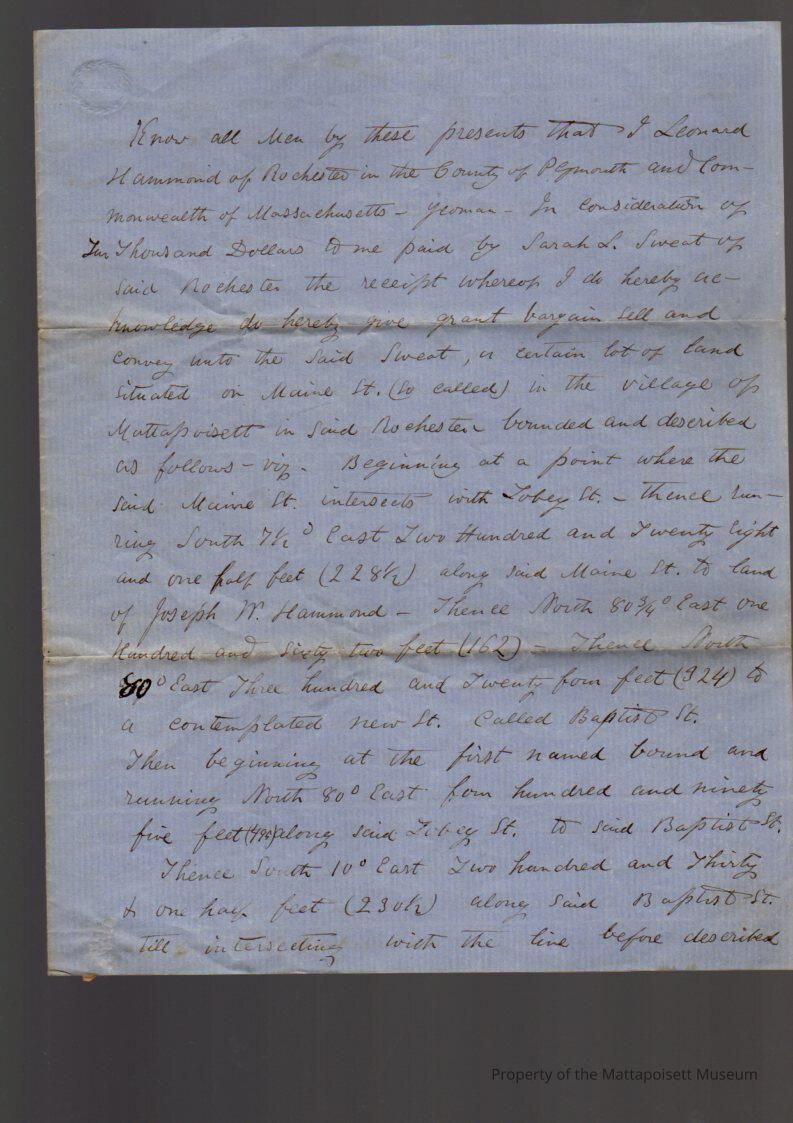 Know all Men by these presents that I Leonard
Hammond of Rochester in the County of Plymouth and Com-
monwealth of Massachusetts - yeoman - In consideration of
Thousand Dollars to me paid by Sarah L. Sweat of
said Rochester the receipt whereof I do hereby ac-
knowledge do hereby give grant bargain sell and
convey unto the said Sweat, a certain lot of land
situated on Maine St. (so called) in the village of
Mattapoisett in said Rochester bounded and described
as follows - viz - Beginning at a point where the
said Maine St. intersects with Tobey St. - thence run-
ning South 7½° East Two Hundred and Twenty Eight
and one half feet (228½) along said Maine St. to land
of Joseph W. Hammond - Thence North 80¾° East one
Hundred and sixty two feet (162) - Thence North
80° East Three hundred and Twenty four feet (324) to
a contemplated new St. called Baptist St.
Then beginning at the first named bound and
running North 80° East four hundred and ninety
five feet (495) along said Tobey St. to said Baptist St.
Thence South 10° East Two hundred and Thirty
& one half feet (230½) along said Baptist St.
till intersecting with the line before described
Property of the Mattapoisett Museum